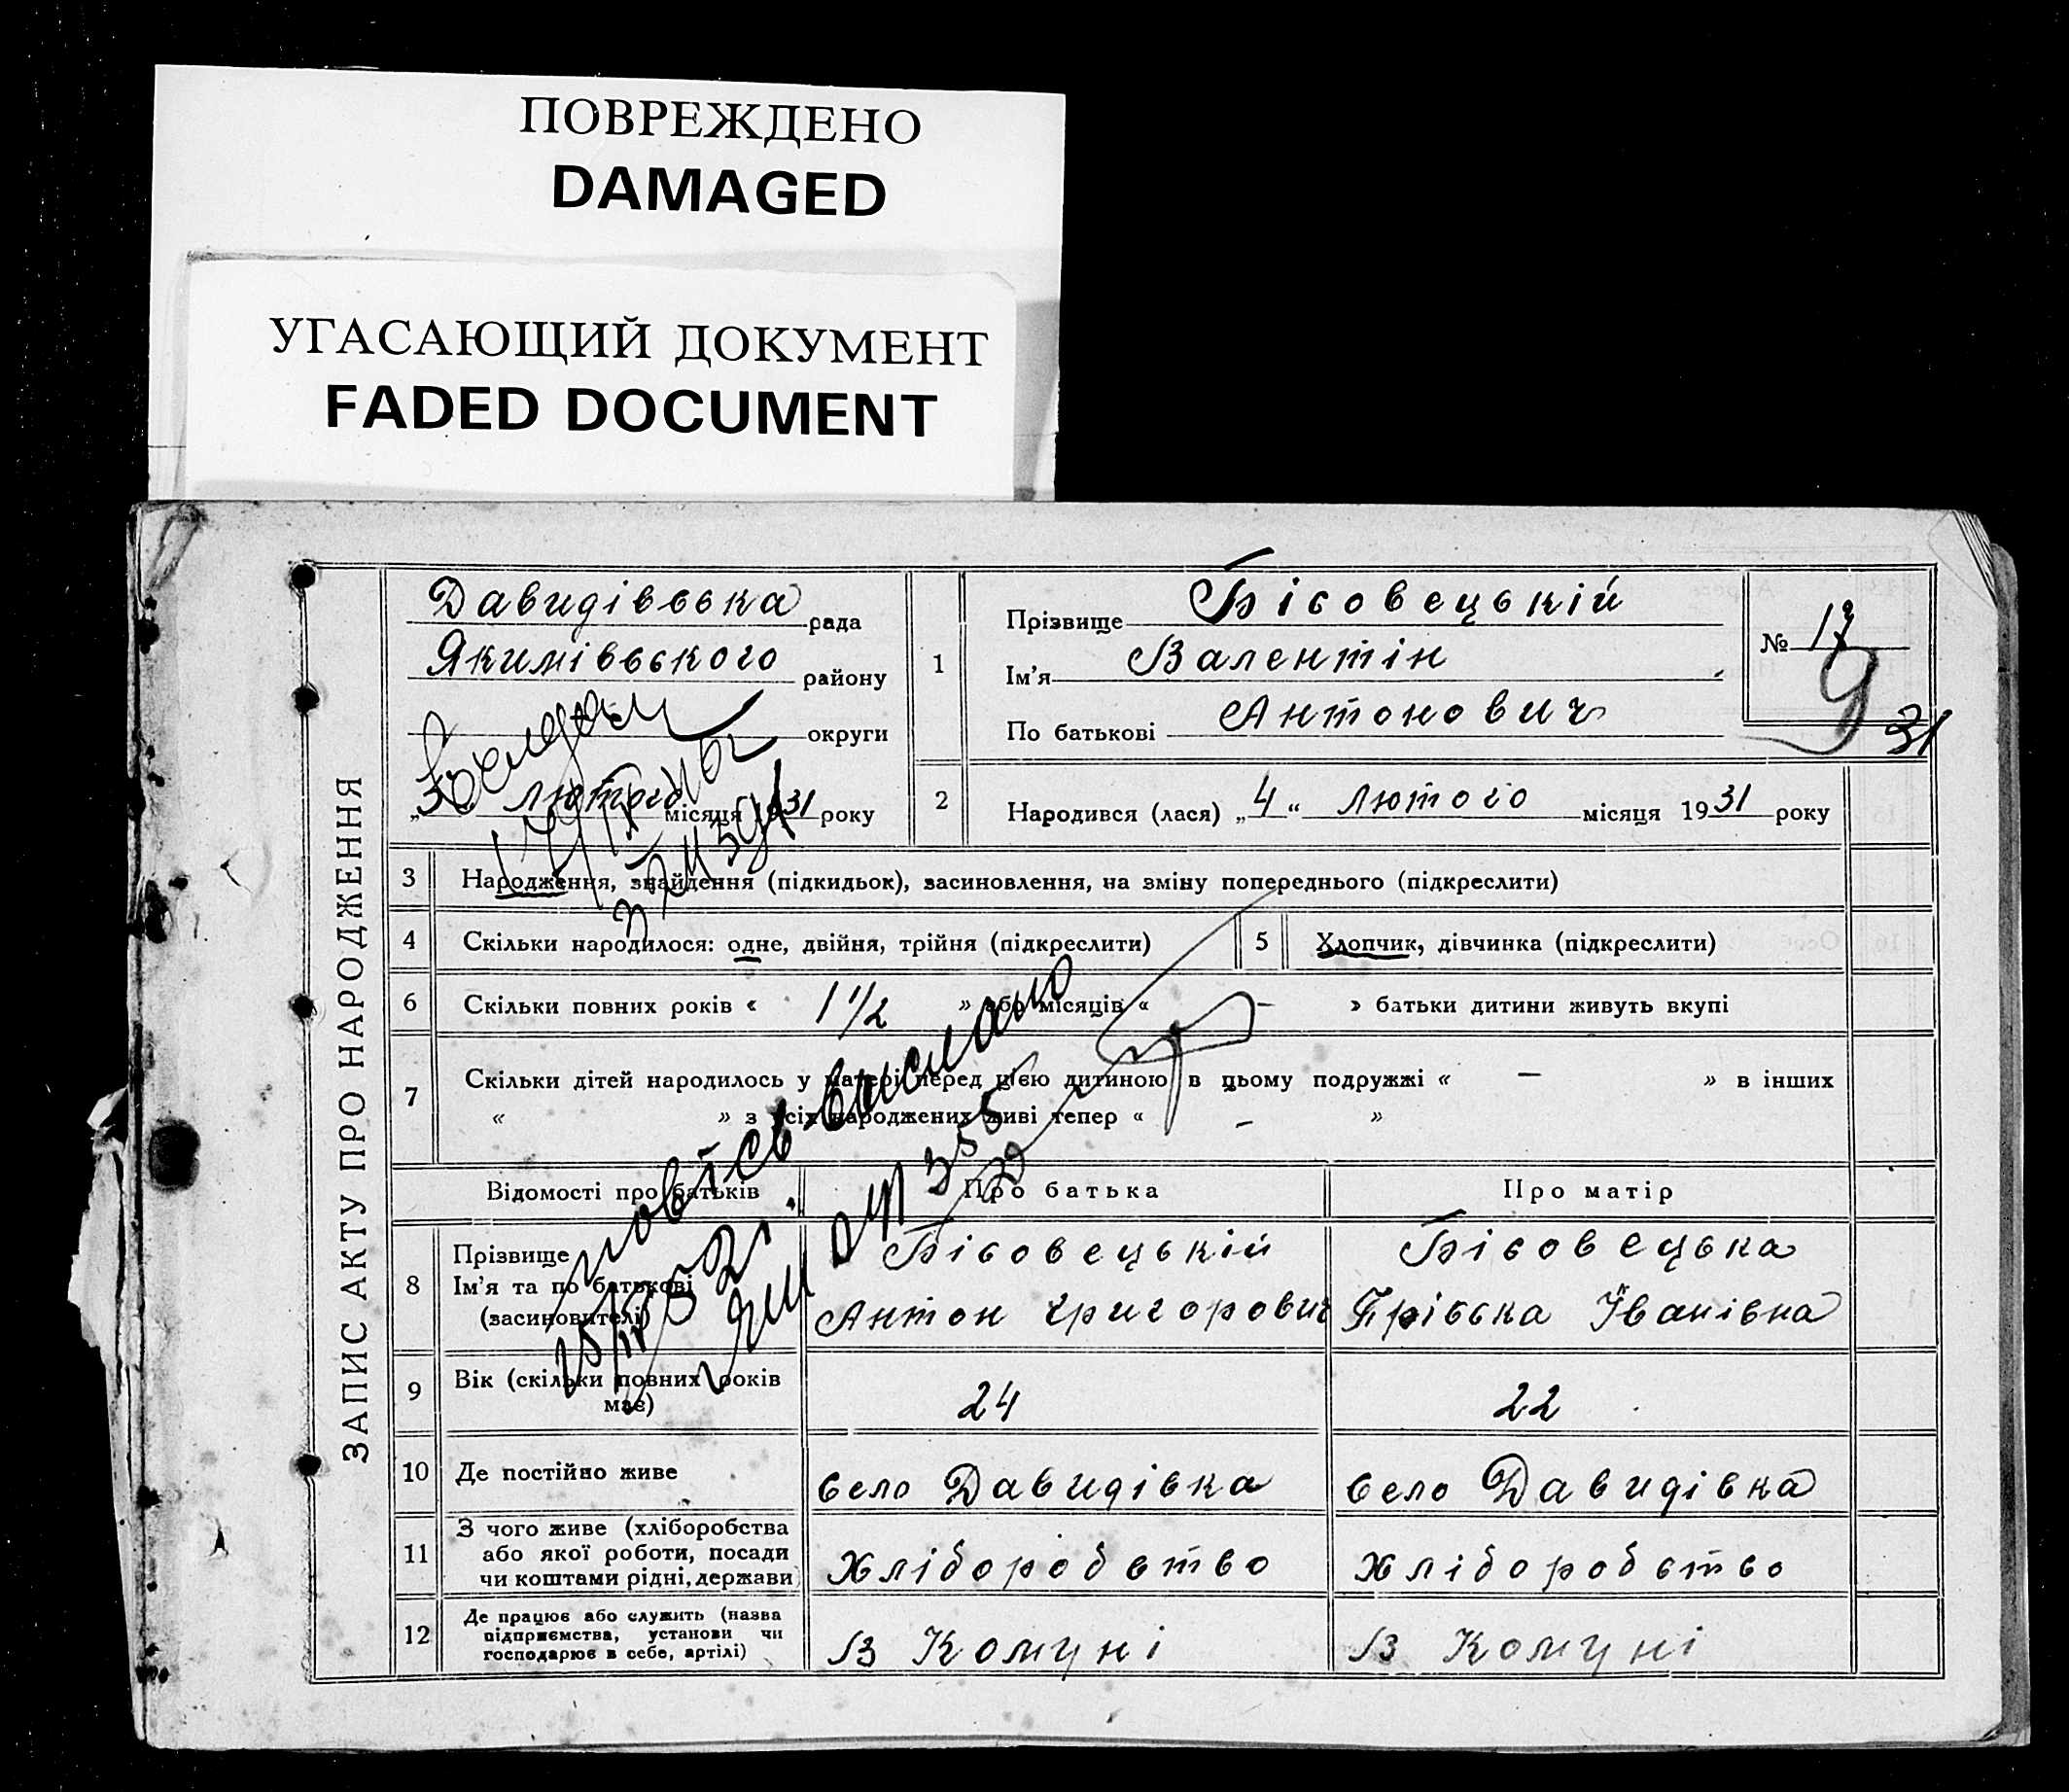 ПОВРЕЖДЕНО
DAMAGED
УГАСАЮЩИЙ ДОКУМЕНТ
FADED DOCUMENT
ЗАПИС АКТУ ПРО НАРОДЖЕННЯ
Давидівська рада
Якимівського району
округи
лютого місяця 1931 року
1 Прізвище Бісовецькій
Ім'я Валентін
По батькові Антонович
№ 17
9
31
2 Народився (лася) „4“ Лютого місяця 1931 року
3 Народження, знайдення (підкидьок), засиновлення, на зміну попереднього (підкреслити)
4 Скільки народилося: одне, двійня, трійня (підкреслити)
5 Хлопчик, дівчинка (підкреслити)
6 Скільки повних років « 1 1/2 » або місяців « – » батьки дитини живуть вкупі
7 Скільки дітей народилось у матері перед цією дитиною в цьому подружжі « — » в інших
« » з усіх народжених живі тепер « – »
Відомості про батьків Про батька Про матір
8 Прізвище
Ім'я та по батькові
(засиновителі)
Бісовецькій
Антон Григорович
Бісовецька
Іванівна
9 Вік (скільки повних років
має)
24
22
10 Де постійно живе
село Давидівка
село Давидівка
11 З чого живе (хліборобства
або якої роботи, посади
чи коштами рідні, держави)
Хліборобство
Хліборобство
12 Де працює або служить (назва
підприємства, установи чи
господарює в себе, артілі)
В Комуні
В Комуні